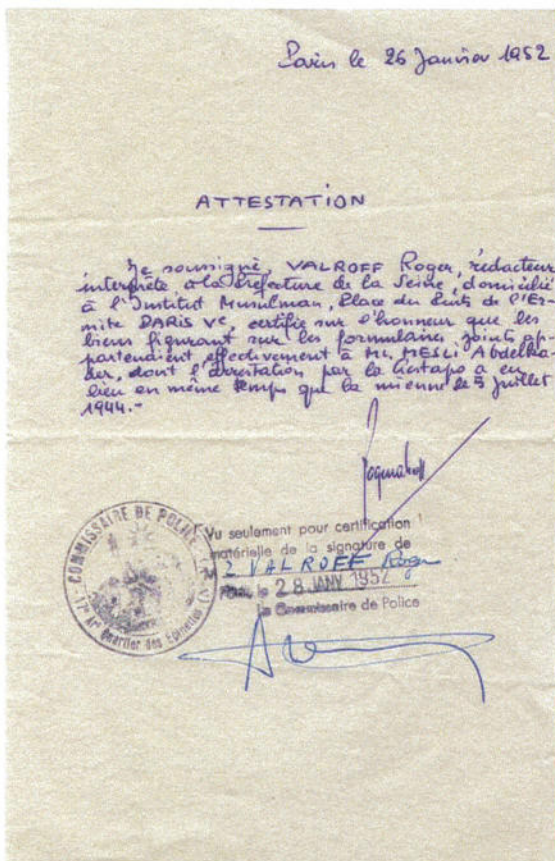 Paris le 26 Janvier 1952
ATTESTATION
Je soussigné, VALROFF Roger, rédacteur
interprète à la Préfecture de la Seine, domicilié
à l'Institut Musulman, Place du Puits de l'Er-
mite PARIS Ve, certifie sur l'honneur que les
biens figurant sur les formulaires joints ap-
partenaient effectivement à Mr. MESLI Abdelka-
der, dont l'arrestation par la Gestapo a eu
lieu en même temps que la mienne le 5 Juillet
1944.-
Vu seulement pour certification
matérielle de la signature de
VALROFF Roger
Paris, le 28 JANV 1952
Le Commissaire de Police
COMMISSAIRE DE POLICE
17e Art Quartier des Epinettes